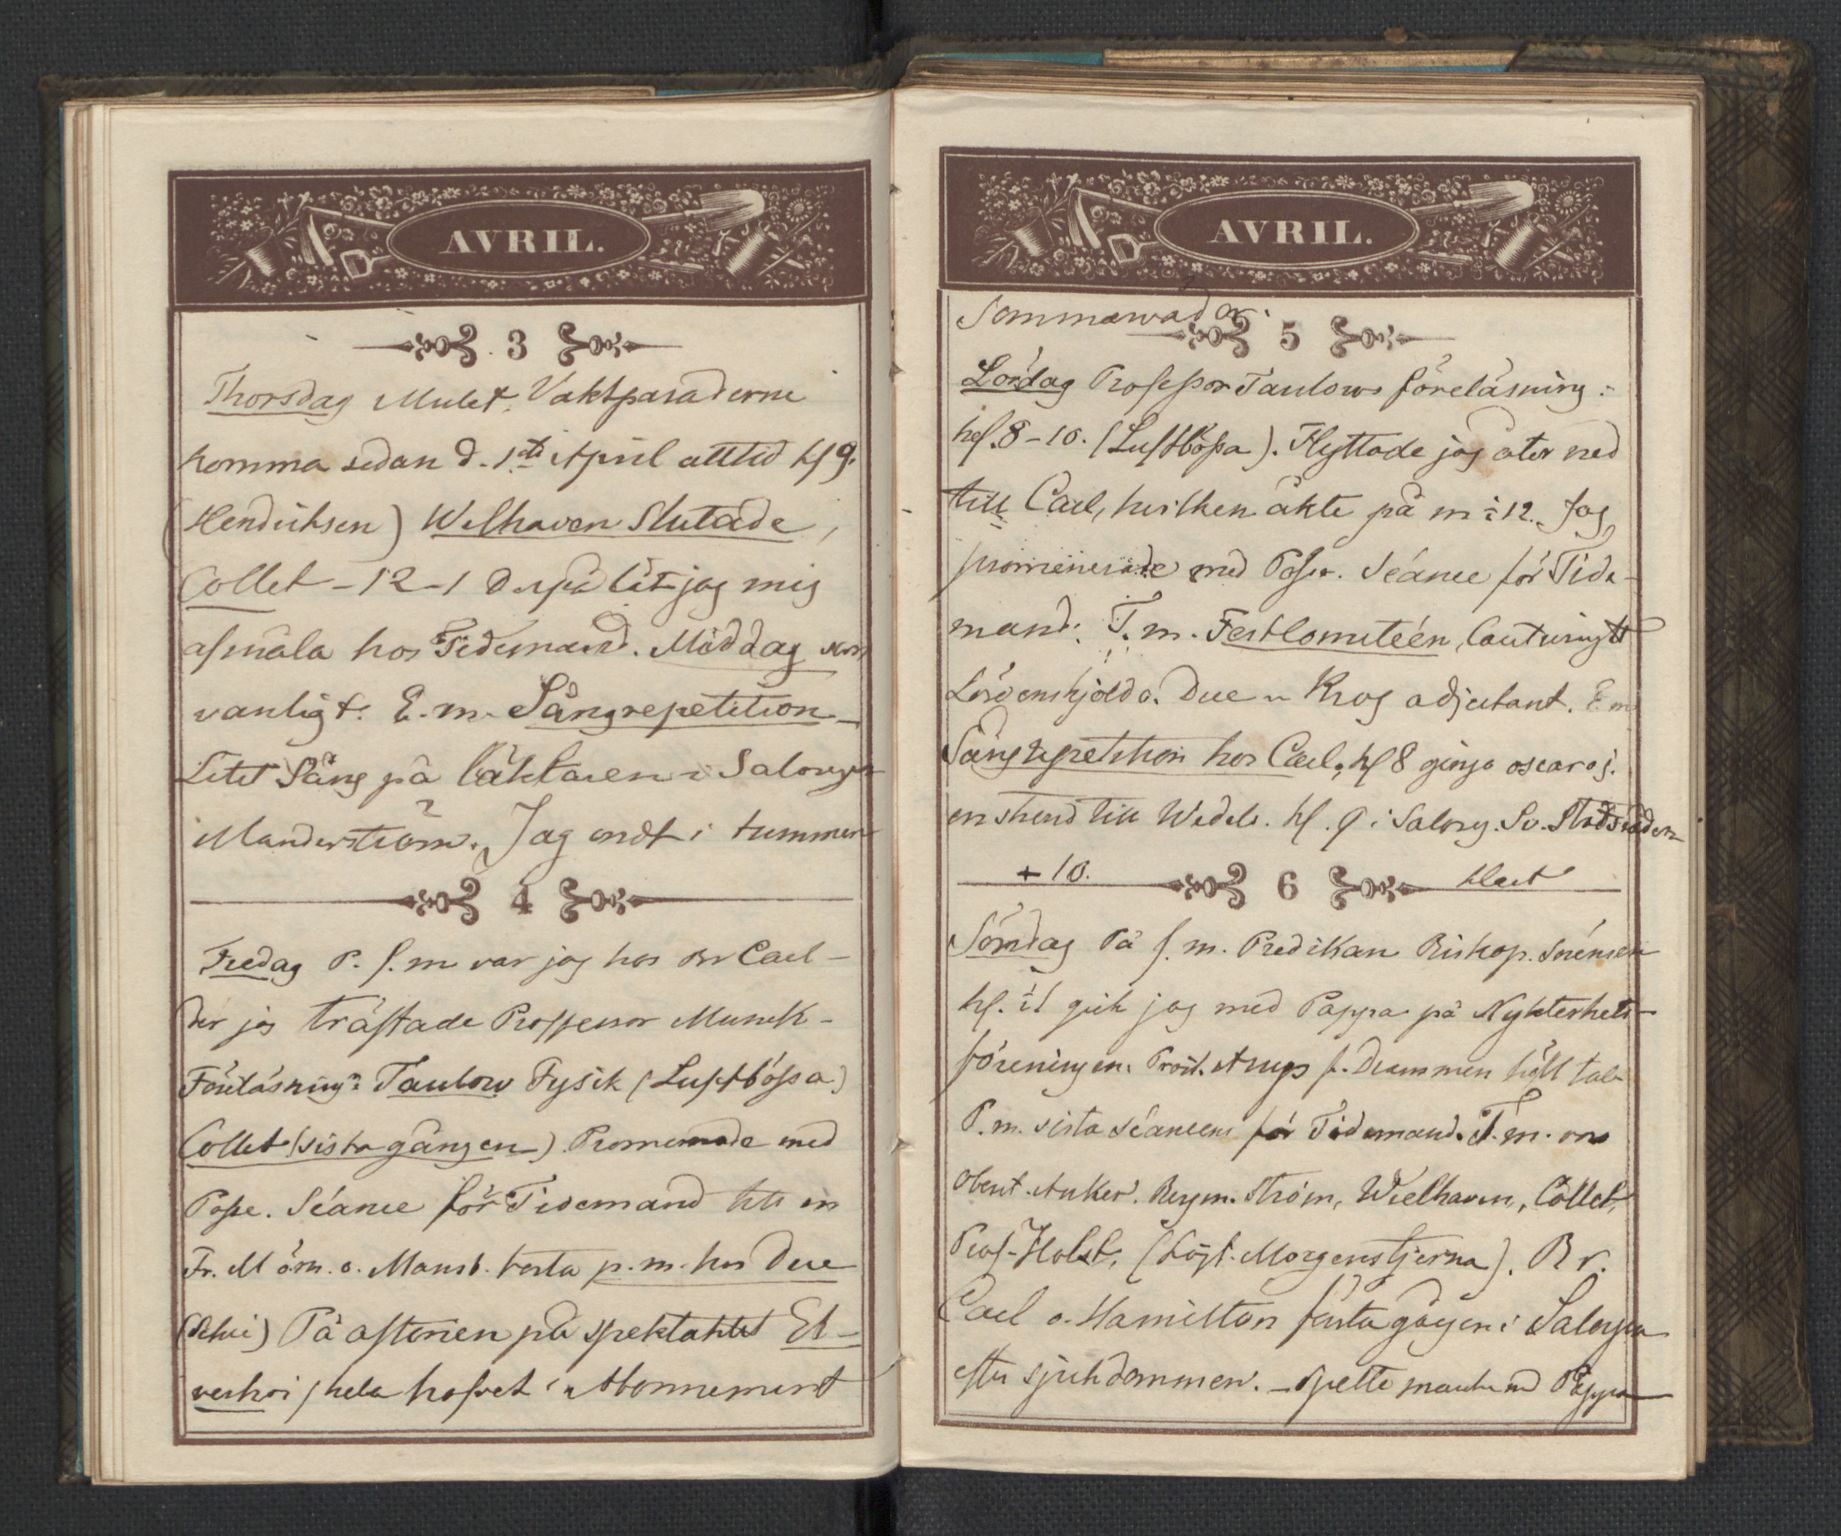 AVRIL.
3
Thorsdag Mulet. Vaktparaderne
komma sedan d. 1sta April alltid kl 9.
(Hendrihsen) Welhaven Slutade,
Collet - 12-1 Derpå lät jag mig
afmåla hos Tidemand. Middag som
vanligt. E.m. Sångrepetition
Litet Sång på läktaren i Salongen
Manderström. Jag ondt i tummen
4
Fredag P. f.m var jag hos Br Carl -
der jag träffade Professor Munck -
Föreläsning: Taulow Fysik (Luftbössa)
Collet (sista gången) Promenade med
Posse. Séance för Tidemand till en
Fr. Mörn. o. Mansb. borta p.m. hos Due
På aftonen på spektaklet El-
verhoi hela hofvet i Abonnement
AVRIL.
Sommarvador.
5
Lördag Professor Taulows föreläsning:
kl. 8-10. (Luftbössa). Flyttade jag åter ned
till Carl, hvilken åkte på m: 12. Jag
promenerade med Posse. Séance för Tide-
mand. T.m. Festkomiteén,
Lövenskjöld o. Due Krog adjutant. E m
Sångrepetition hos Carl, kl 8 gingo oscar o j.
en stund till Wedels. kl. 9 i Salong. Sv. Statsråden
+ 10.
6
klart
Söndag På f.m. Predikan Biskop. Sörensen
kl. 11 gick jag med Pappa på Nykterhets-
föreningen. Prost. Arups f. Drammen höll tal
P.m. sista séancen för Tidemand. T.m. var
Obent. Anker. Berym. Ström, Wielhaven, Collet,
Prof. Holst, (Löjt. Morgenstjerna). Br.
Carl o. Hamilton första gången i Salongen
efter sjukdommen. - spelte med Pappa